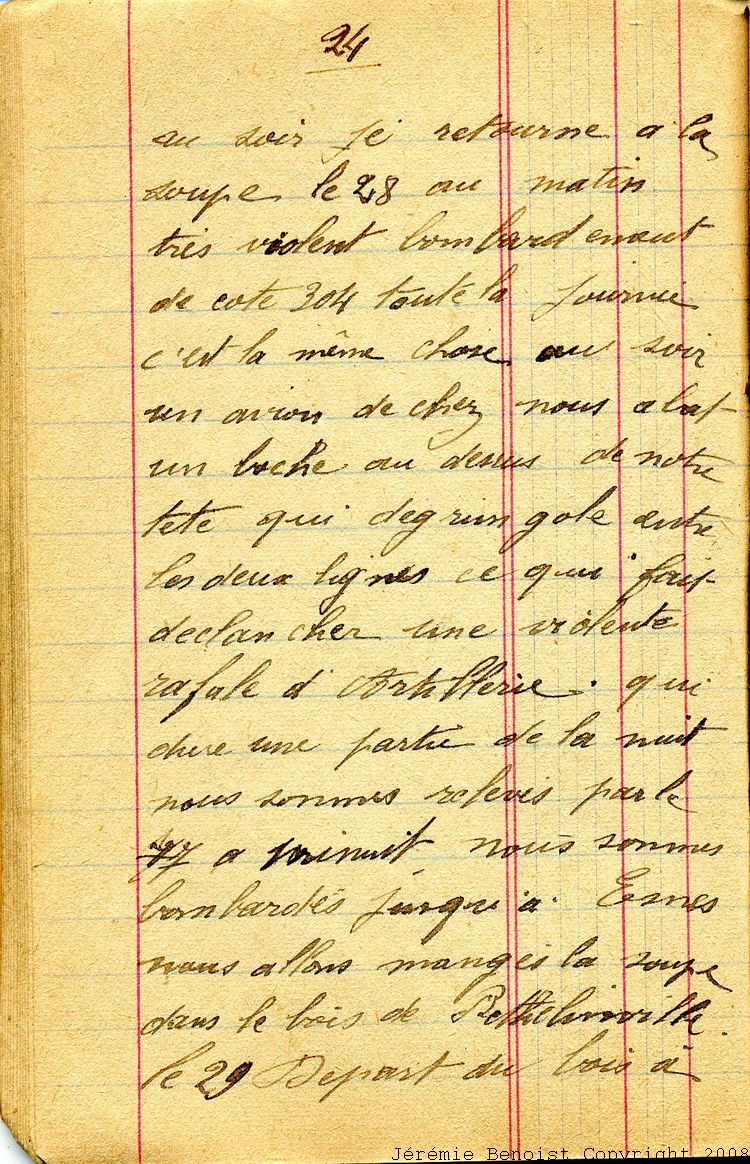 24
au soir je retourne a la
soupe le 28 au matin
très violent bombardement
de cote 304 toute la journée
c'est la même chose au soir
un avion de chez nous abat
un boche au dessus de notre
tete qui degringole entre
les deux lignes ce qui fait
declancher une violente
rafale d'Artillerie. qui
dure une partie de la nuit
nous sommes relevés par le
77 a minuit nous sommes
bombardés jusqu'a Esnes
nous allons manges la soupe
dans le bois de Bethelinville.
le 29 Depart du bois à
Jérémie Benoist Copyright 2008